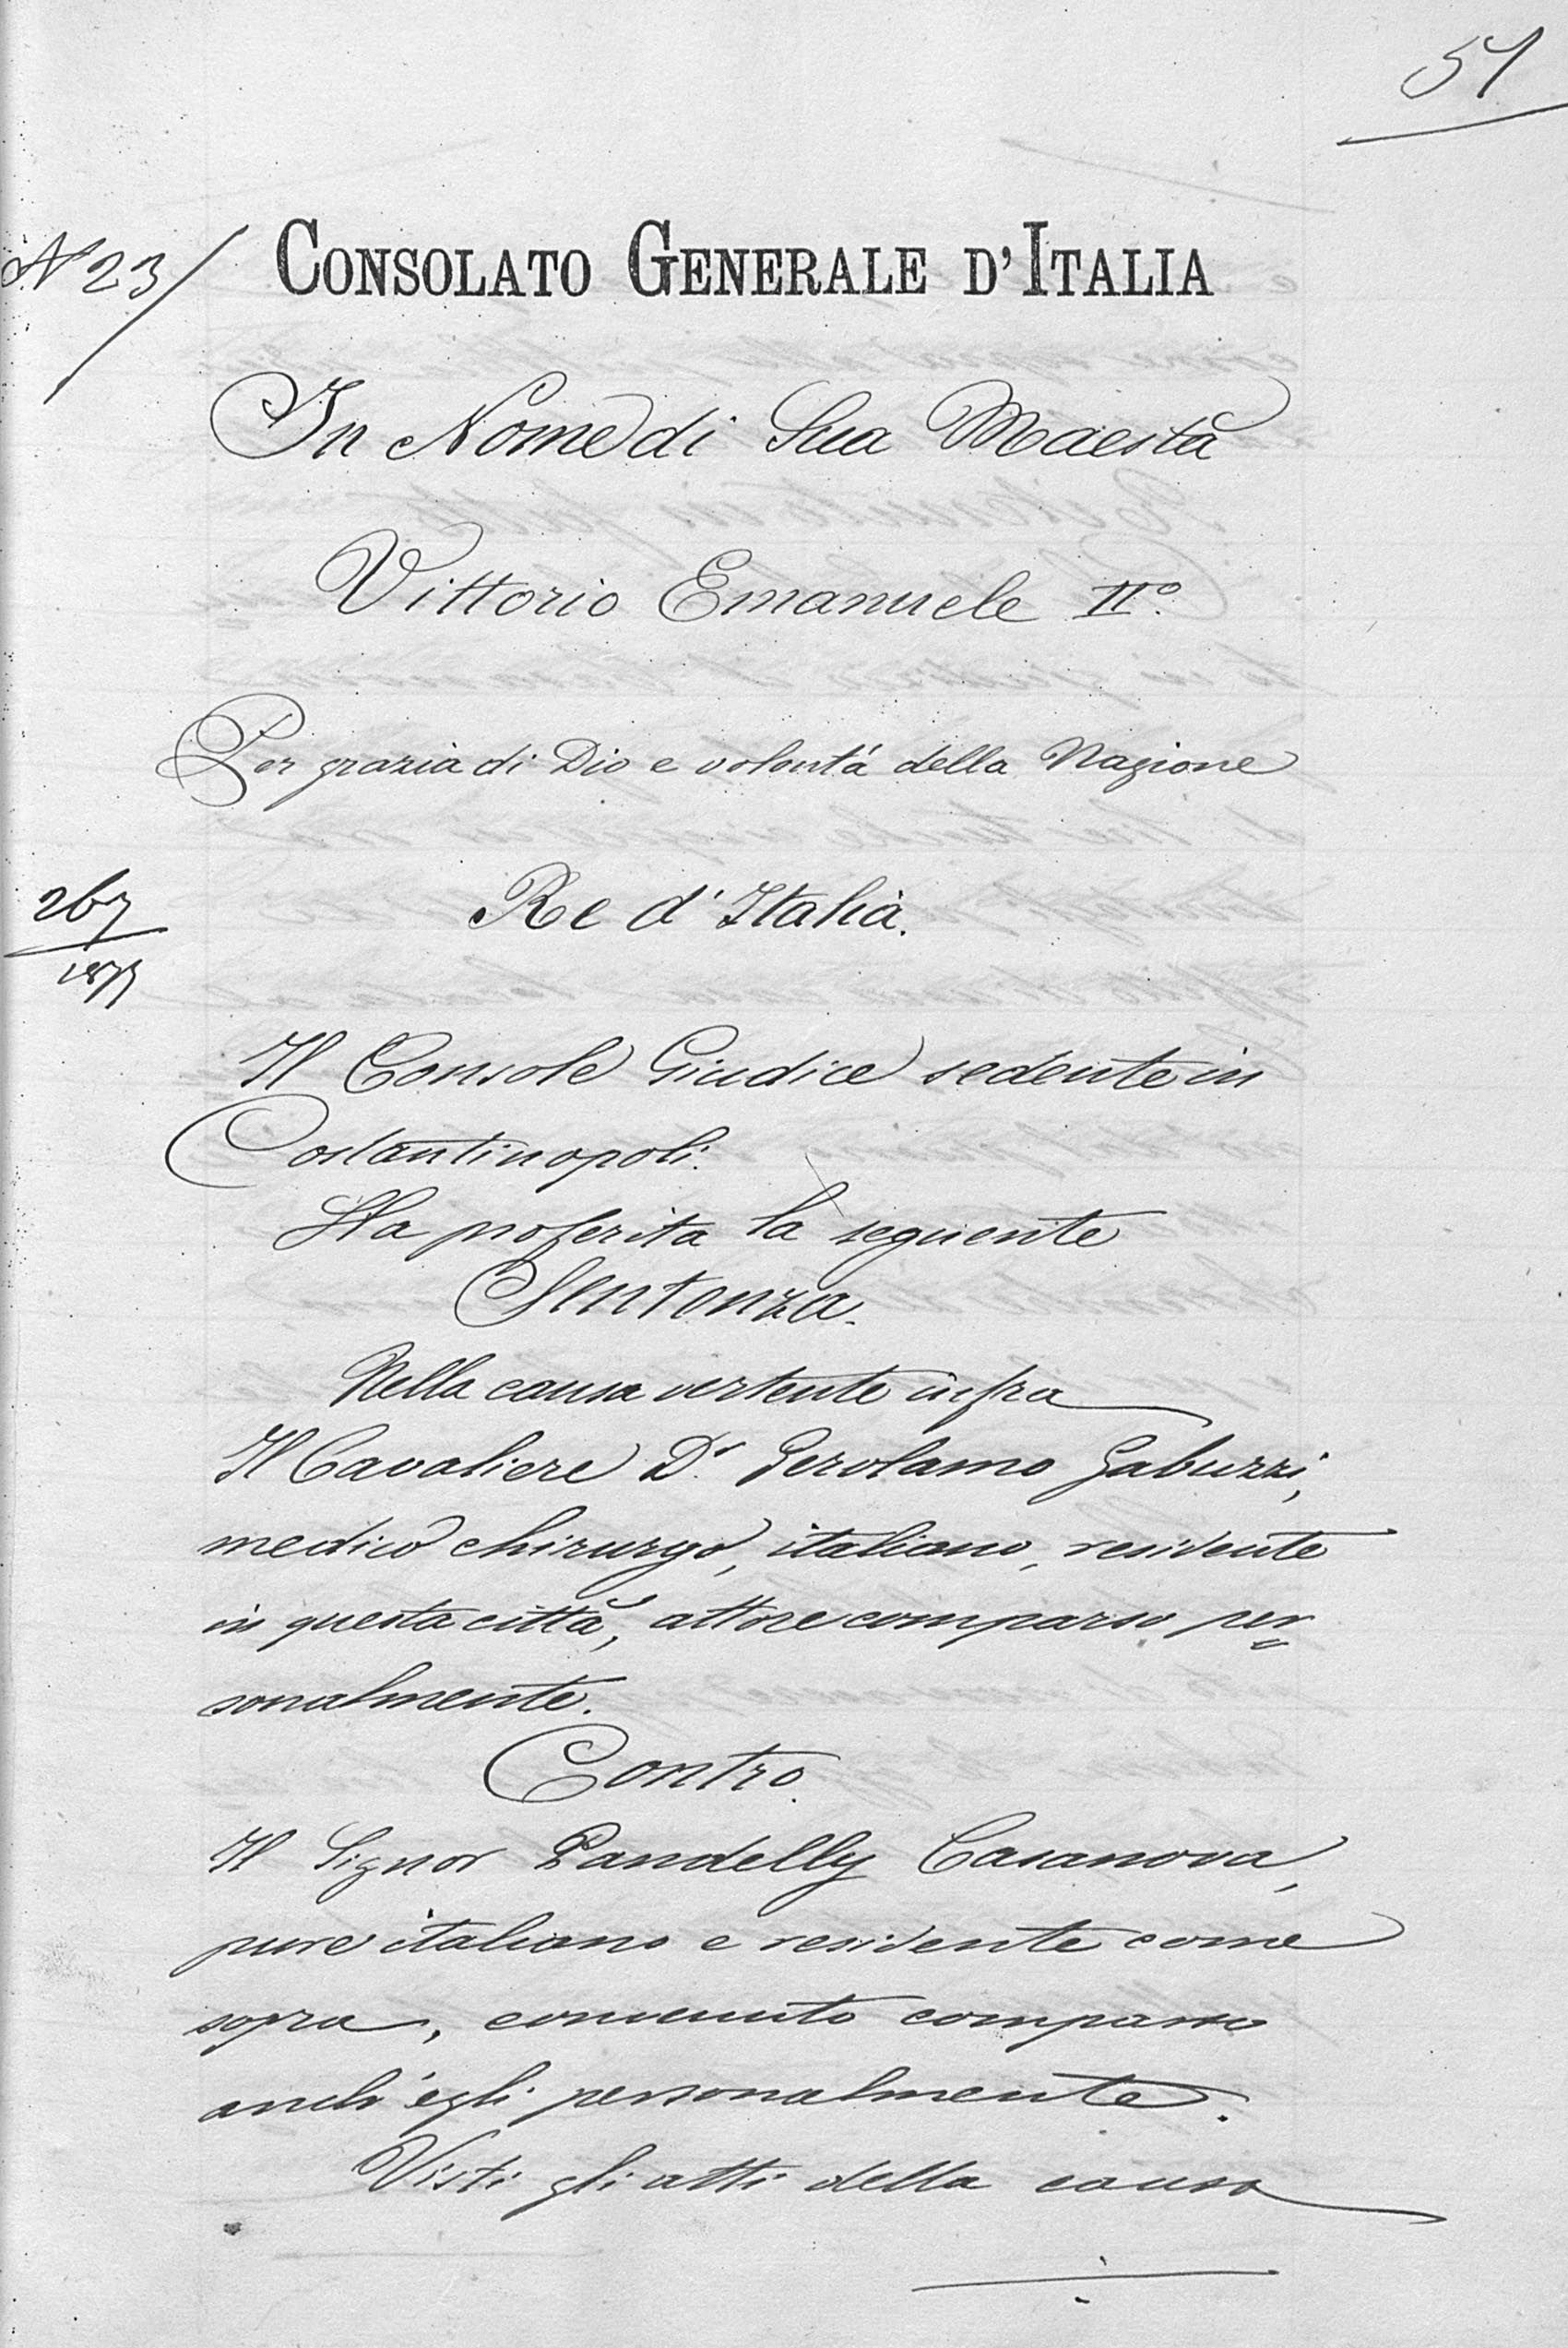 51
N° 23
CONSOLATO GENERALE D'ITALIA
In Nome di Sua Maestà
Vittorio Emanuele II°.
Per grazia di Dio e volontá della Nazione
Re d'Italia.
267
1877
Il Console Giudice sedente in
Costantinopoli.
Ha proferita la seguente
Sentenza.
Nella causa vertente infra
Il Cavaliere Dr. Gerolamo Gabuzzi,
medico chirurgo, italiano, residente
in questa città, attore comparso per=
sonalmente.
Contro.
Il Signor Pandelly Casanova,
pure italiano e residente come
sopra, convenuto comparso
anch'egli personalmente.
Visti gli atti della causa